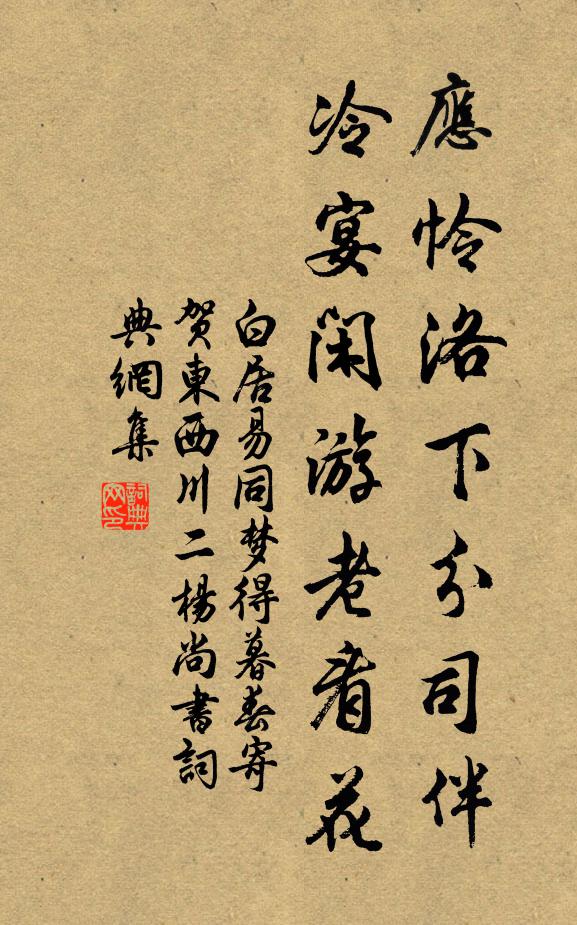 應怜洛下分司伴
冷宴閑游老看花
白居易同梦得暮春寄
贺東西川二楊尚書詞
典網集
詞典
网印